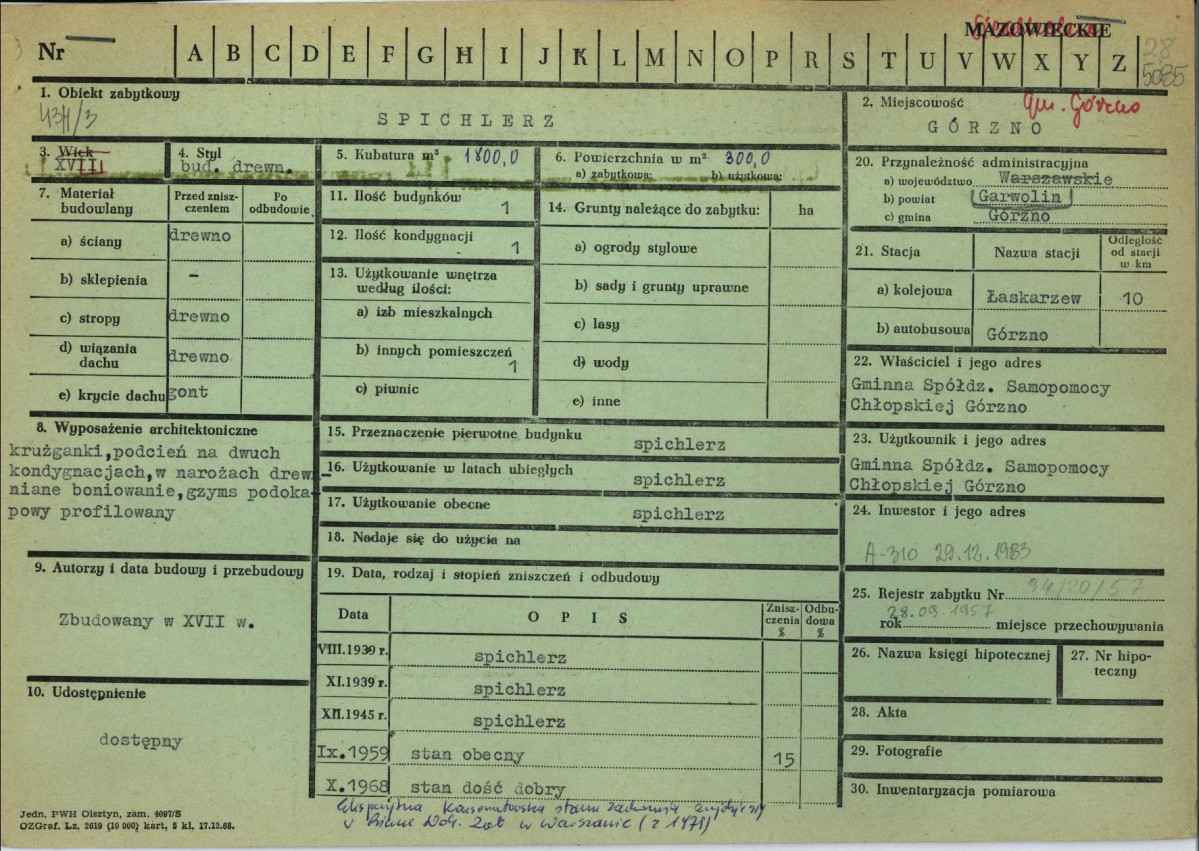 MAZOWIECKIE
Nr A B C D E F G H I J K L M N O P R S T U V W X Y Z
28
5085
1. Obiekt zabytkowy
SPICHLERZ
2. Miejscowość gm. Górzno
GÓRZNO
3. Wiek
XVIII
4. Styl
bud. drewn.
5. Kubatura m³ 1800,0
6. Powierzchnia w m² 300,0
a) zabytkowa: b) użytkowa:
7. Materiał budowlany
Przed zniszczeniem
Po odbudowie
a) ściany drewno
b) sklepienia –
c) stropy drewno
d) wiązania dachu drewno
e) krycie dachu gont
11. Ilość budynków 1
12. Ilość kondygnacji 1
13. Użytkowanie wnętrza
według ilości:
a) izb mieszkalnych
b) innych pomieszczeń 1
c) piwnic
14. Grunty należące do zabytku: ha
a) ogrody stylowe
b) sady i grunty uprawne
c) lasy
d) wody
e) inne
20. Przynależność administracyjna
a) województwo Warszawskie
b) powiat Garwolin
c) gmina Górzno
21. Stacja
Nazwa stacji
Odległość od stacji w km
a) kolejowa Łaskarzew 10
b) autobusowa Górzno
22. Właściciel i jego adres
Gminna Spółdz. Samopomocy
Chłopskiej Górzno
8. Wyposażenie architektoniczne
krużganki,podcień na dwuch
kondygnacjach,w narożach drew-
niane boniowanie,gzyms podoka-
powy profilowany
15. Przeznaczenie pierwotne budynku spichlerz
16. Użytkowanie w latach ubiegłych spichlerz
17. Użytkowanie obecne spichlerz
18. Nadaje się do użycia na
23. Użytkownik i jego adres
Gminna Spółdz. Samopomocy
Chłopskiej Górzno
24. Inwestor i jego adres
A-310 29.12.1983
9. Autorzy i data budowy i przebudowy
Zbudowany w XVII w.
19. Data, rodzaj i stopień zniszczeń i odbudowy
Data OPIS Zniszczenia % Odbudowa %
VIII.1939 r. spichlerz
XI.1939 r. spichlerz
XII.1945 r. spichlerz
Ix.1959 stan obecny 15
X.1968 stan dość dobry
w Warszawie
25. Rejestr zabytku Nr 94/20/57
28.09.1957
rok miejsce przechowywania
26. Nazwa księgi hipotecznej
27. Nr hipoteczny
28. Akta
29. Fotografie
30. Inwentaryzacja pomiarowa
10. Udostępnienie
dostępny
Jedn. PWH Olsztyn, zam. 4097/S
OZGraf. Lz. 2619 (10 000) kart, 5 kl, 17.12.68.